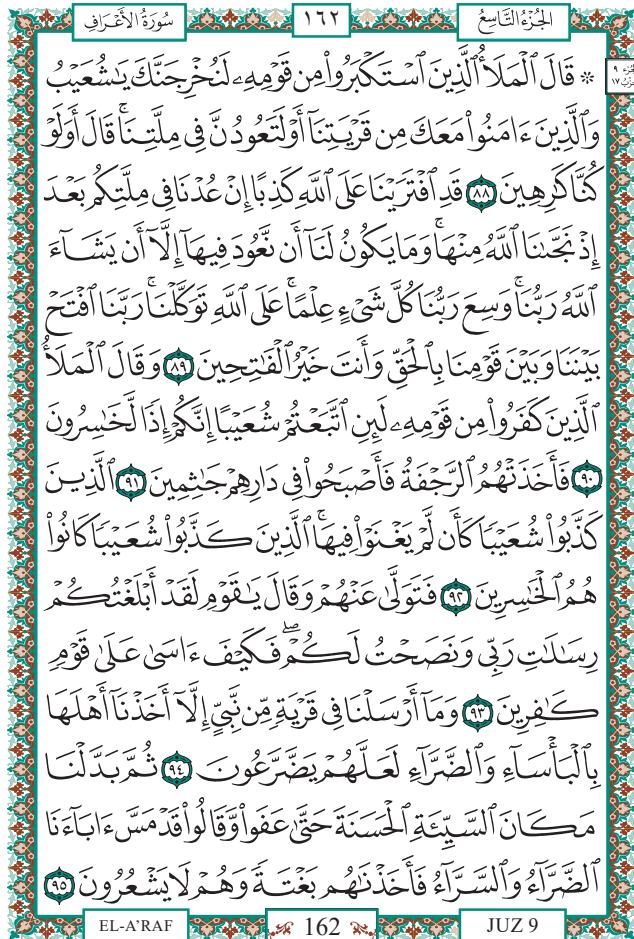 سُورَةُ الأَعْرَافِ ١٦٢ الجُزْءُ التَّاسِعُ
۞ قَالَ ٱلْمَلَأُ ٱلَّذِينَ ٱسْتَكْبَرُوا۟ مِن قَوْمِهِۦ لَنُخْرِجَنَّكَ يَـٰشُعَيْبُ
وَٱلَّذِينَ ءَامَنُوا۟ مَعَكَ مِن قَرْيَتِنَآ أَوْ لَتَعُودُنَّ فِى مِلَّتِنَا ۚ قَالَ أَوَلَوْ
كُنَّا كَـٰرِهِينَ ٨٨ قَدِ ٱفْتَرَيْنَا عَلَى ٱللَّهِ كَذِبًا إِنْ عُدْنَا فِى مِلَّتِكُم بَعْدَ
إِذْ نَجَّىٰنَا ٱللَّهُ مِنْهَا ۚ وَمَا يَكُونُ لَنَآ أَن نَّعُودَ فِيهَآ إِلَّآ أَن يَشَآءَ
ٱللَّهُ رَبُّنَا ۚ وَسِعَ رَبُّنَا كُلَّ شَىْءٍ عِلْمًا ۚ عَلَى ٱللَّهِ تَوَكَّلْنَا ۚ رَبَّنَا ٱفْتَحْ
بَيْنَنَا وَبَيْنَ قَوْمِنَا بِٱلْحَقِّ وَأَنتَ خَيْرُ ٱلْفَـٰتِحِينَ ٨٩ وَقَالَ ٱلْمَلَأُ
ٱلَّذِينَ كَفَرُوا۟ مِن قَوْمِهِۦ لَئِنِ ٱتَّبَعْتُمْ شُعَيْبًا إِنَّكُمْ إِذًا لَّخَـٰسِرُونَ
٩٠ فَأَخَذَتْهُمُ ٱلرَّجْفَةُ فَأَصْبَحُوا۟ فِى دَارِهِمْ جَـٰثِمِينَ ٩١ ٱلَّذِينَ
كَذَّبُوا۟ شُعَيْبًا كَأَن لَّمْ يَغْنَوْا۟ فِيهَا ۚ ٱلَّذِينَ كَذَّبُوا۟ شُعَيْبًا كَانُوا۟
هُمُ ٱلْخَـٰسِرِينَ ٩٢ فَتَوَلَّىٰ عَنْهُمْ وَقَالَ يَـٰقَوْمِ لَقَدْ أَبْلَغْتُكُمْ
رِسَـٰلَـٰتِ رَبِّى وَنَصَحْتُ لَكُمْ ۖ فَكَيْفَ ءَاسَىٰ عَلَىٰ قَوْمٍ
كَـٰفِرِينَ ٩٣ وَمَآ أَرْسَلْنَا فِى قَرْيَةٍ مِّن نَّبِىٍّ إِلَّآ أَخَذْنَآ أَهْلَهَا
بِٱلْبَأْسَآءِ وَٱلضَّرَّآءِ لَعَلَّهُمْ يَضَّرَّعُونَ ٩٤ ثُمَّ بَدَّلْنَا
مَكَانَ ٱلسَّيِّئَةِ ٱلْحَسَنَةَ حَتَّىٰ عَفَوا۟ وَّقَالُوا۟ قَدْ مَسَّ ءَابَآءَنَا
ٱلضَّرَّآءُ وَٱلسَّرَّآءُ فَأَخَذْنَـٰهُم بَغْتَةً وَهُمْ لَا يَشْعُرُونَ ٩٥
EL-A'RAF 162 JUZ 9